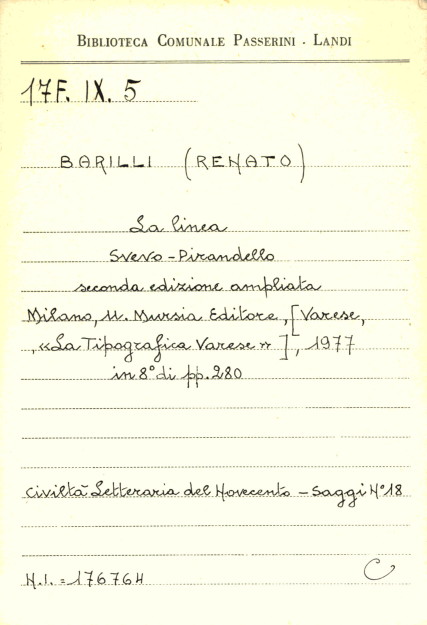 BIBLIOTECA COMUNALE PASSERINI - LANDI
17F. IX. 5
BARILLI (RENATO)
La linea
Svevo - Pirandello
seconda edizione ampliata
Milano, U. Mursia Editore, [Varese,
"La Tipografica Varese"], 1977
in 8° di pp. 280
Civiltà Letteraria del Novecento - Saggi N° 18
N.I. = 176764
C